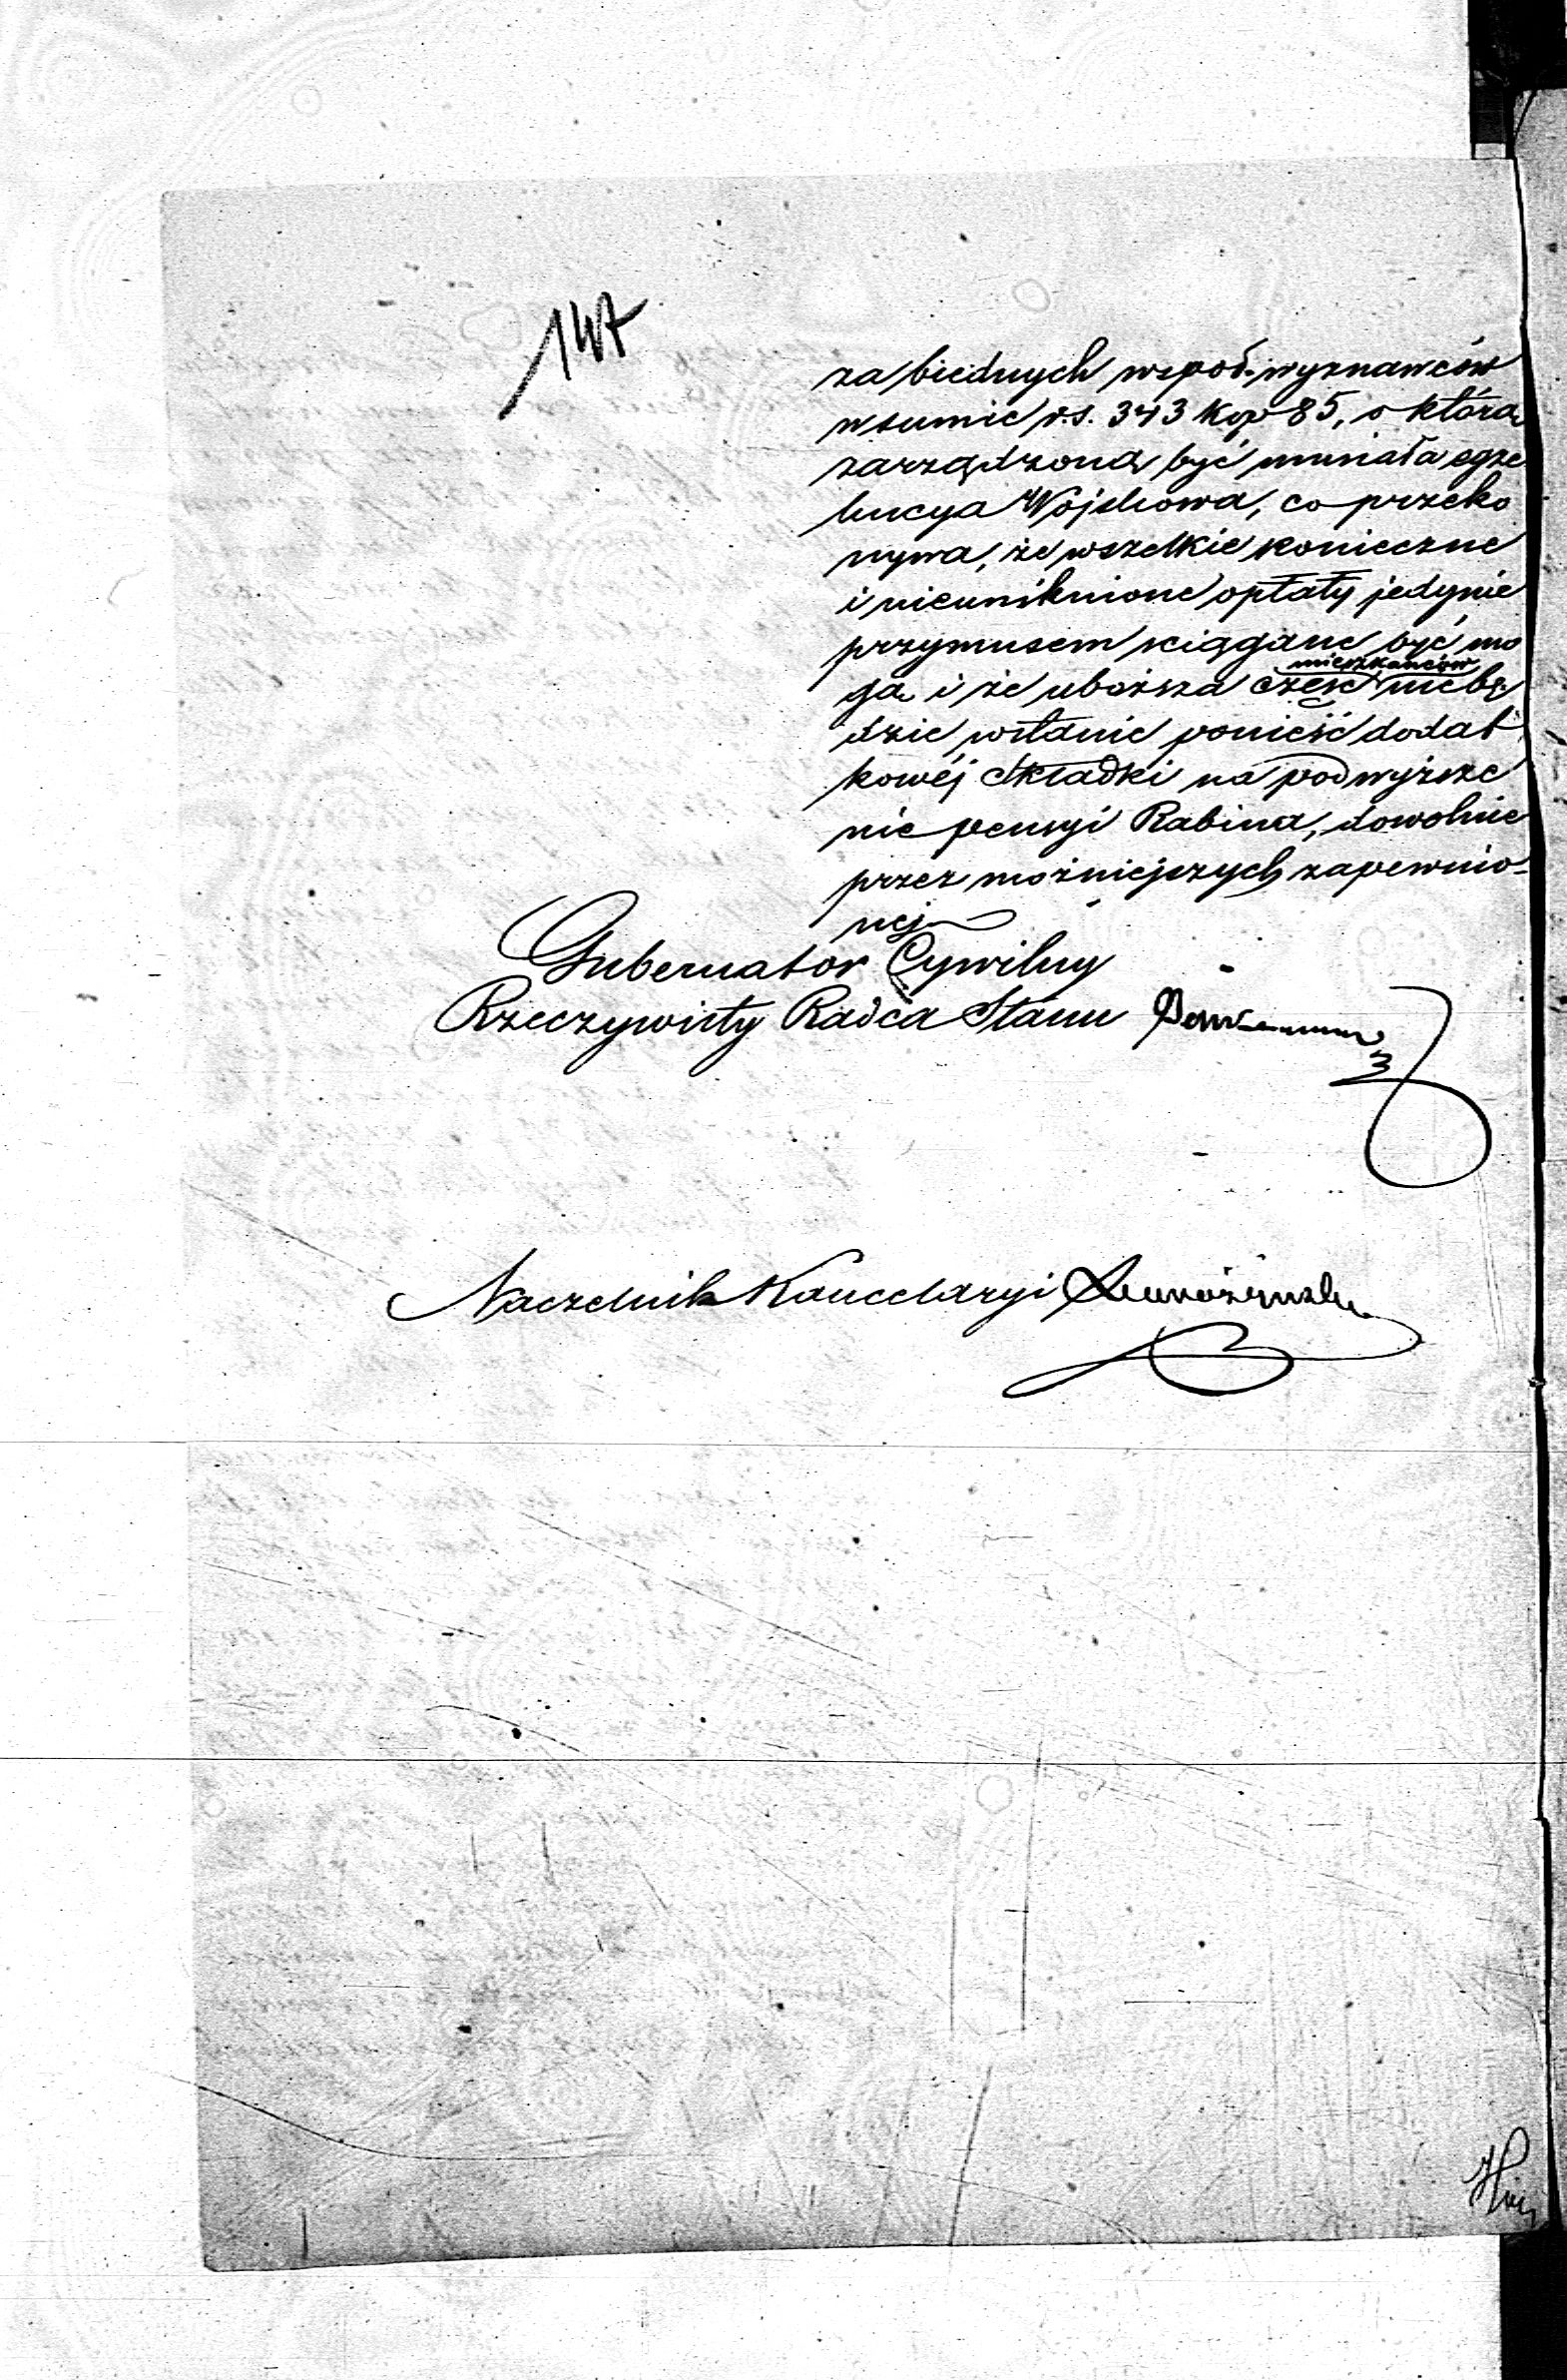 147
za biednych wspoł-wyznawców
w sumie r.s. 343 kop 85, o którą
zarządzoną być musiała egze
kucya Wojskowa, co przeko
nywa, że wszelkie konieczne
i nieuniknione opłaty jedynie
przymusem ściągane być mo
gą i że uboższa część mieszkańców niebę
dzie wstanie ponieść dodat
kowéj składki na podwyższe
nie pensyi Rabina, dowolnie
przez możniejszych zapewnio-
nej
Gubernator Cywilny
Rzeczywisty Radca Stanu
Naczelnik Kancelaryi